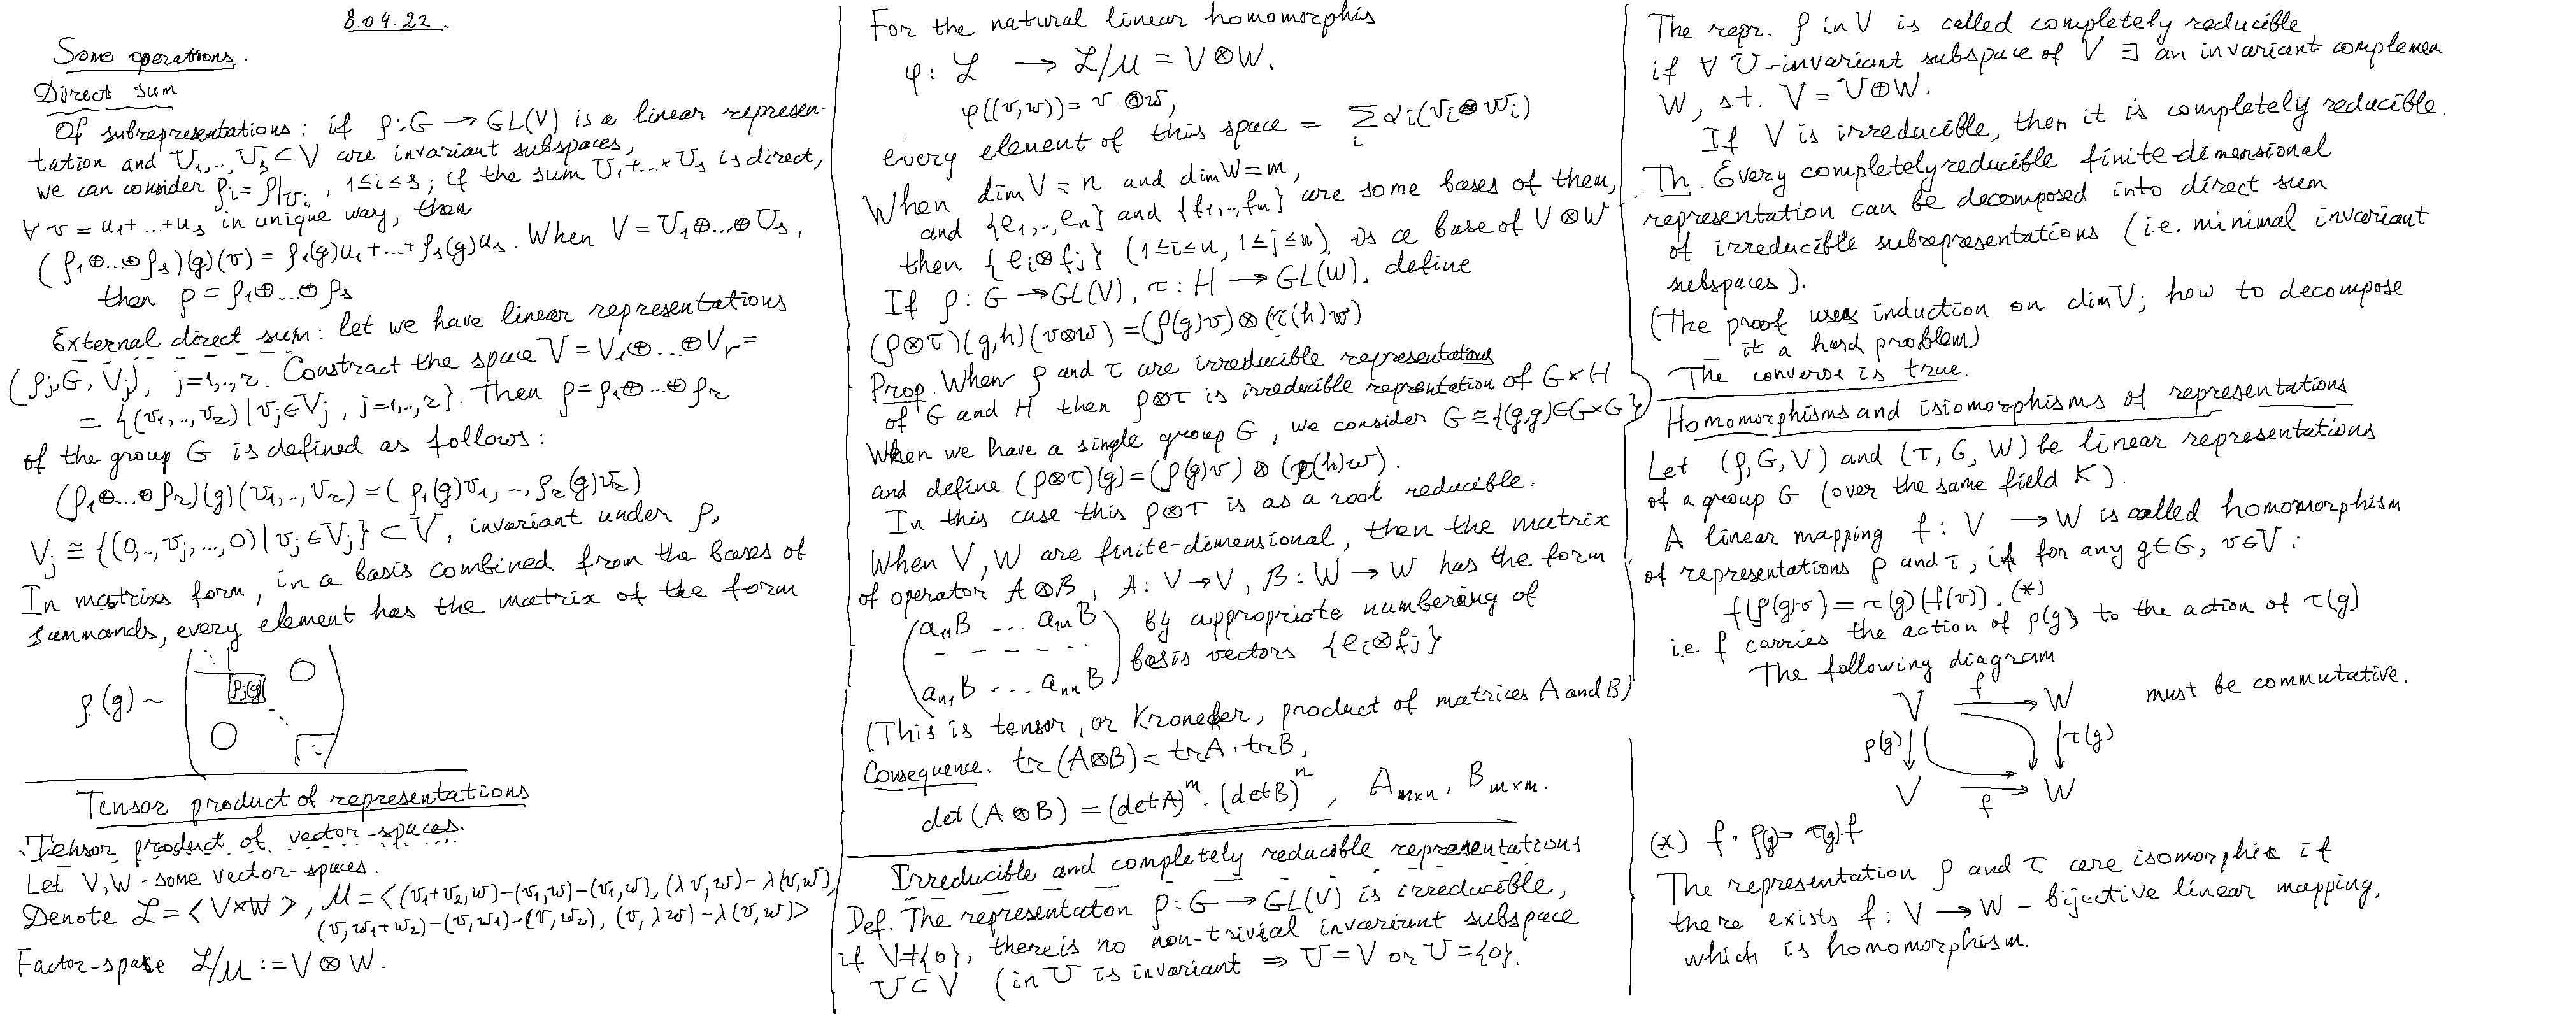 8.04.22.
Some operations.
Direct sum
Of subrepresentations: if ρ: G → GL(V) is a linear represen-
tation and U₁,.., Uₛ ⊂ V are invariant subspaces,
we can consider ρᵢ = ρ|ᵤᵢ, 1≤i≤s; if the sum U₁+...+Uₛ is direct,
∀ v = u₁+...+uₛ in unique way, then
(ρ₁⊕...⊕ρₛ)(g)(v) = ρ₁(g)u₁+...+ρₛ(g)uₛ. When V = U₁⊕...⊕Uₛ,
then ρ = ρ₁⊕...⊕ρₛ
External direct sum: let we have linear representations
(ρⱼ, G, Vⱼ), j=1,..,r. Constract the space V = V₁⊕...⊕Vᵣ =
= {(v₁,..,vᵣ) | vⱼ∈Vⱼ, j=1,..,r}. Then ρ=ρ₁⊕...⊕ρᵣ
of the group G is defined as follows:
(ρ₁⊕...⊕ρᵣ)(g)(v₁,..,vᵣ) = (ρ₁(g)v₁, .., ρᵣ(g)vᵣ)
Vⱼ ≅ {(0,..,vⱼ,...,0) | vⱼ∈Vⱼ} ⊂ V, invariant under ρ.
In matrixs form, in a basis combined from the bases of
summands, every element has the matrix of the form
ρ(g) ~ ( ρⱼ(g) 0 0 )
Tensor product of representations
Tensor product of vector-spaces.
Let V,W - some vector-spaces.
Denote ℒ = < V×W >, M = <(v₁+v₂,w)-(v₁,w)-(v₁,w), (λv,w)-λ(v,w),
(v,w₁+w₂)-(v,w₁)-(v,w₂), (v,λw)-λ(v,w)>
Factor-space ℒ/M := V⊗W.
For the natural linear homomorphis
φ: ℒ → ℒ/M = V⊗W,
φ((v,w)) = v⊗w,
every element of this space = Σᵢ αᵢ(vᵢ⊗wᵢ)
When dim V = n and dim W = m,
and {e₁,..,eₙ} and {f₁,..,fₘ} are some bases of them,
then {eᵢ⊗fⱼ} (1≤i≤n, 1≤j≤m) is a base of V⊗W
If ρ: G → GL(V), τ: H → GL(W), define
(ρ⊗τ)(g,h)(v⊗w) = (ρ(g)v)⊗(τ(h)w)
Prop. When ρ and τ are irreducible representations
of G and H then ρ⊗τ is irreducible representation of G×H
When we have a single group G, we consider G≅{(g,g)∈G×G}
and define (ρ⊗τ)(g) = (ρ(g)v)⊗(ρ(h)w).
In this case this ρ⊗τ is as a root reducible.
When V, W are finite-dimensional, then the matrix
of operator A⊗B, A: V→V, B: W→W has the form
(a₁₁B ... a₁ₙB
- - - - - -
aₙ₁B ... aₙₙB)
By appropriate numbering of
basis vectors {eᵢ⊗fⱼ}
(This is tensor, or Kroneker, product of matrices A and B)
Consequence. tr(A⊗B) = trA · trB,
det(A⊗B) = (detA)ᵐ · (detB)ⁿ, Aₙₓₙ, Bₘₓₘ.
Irreducible and completely reducible representations
Def. The representaton ρ: G → GL(V) is irreducible,
if V≠{0}, there is no non-trivial invariant subspace
U⊂V (in U is invariant ⇒ U=V or U={0}.
The repr. ρ in V is called completely reducible
if ∀ U-invariant subspace of V ∃ an invariant complemen
W, s.t. V = U⊕W.
If V is irreducible, then it is completely reducible.
Th. Every completely reducible finite-dimensional
representation can be decomposed into direct sum
of irreducible subrepresentations (i.e. minimal invariant
subspaces).
(The proof uses induction on dim V; how to decompose
it a hard problem)
The converse is true.
Homomorphisms and isiomorphisms of representations
Let (ρ,G,V) and (τ,G,W) be linear representations
of a group G (over the same field K).
A linear mapping f: V → W is called homomorphism
of representations ρ and τ, if for any g∈G, v∈V:
f(ρ(g)v) = τ(g)(f(v)), (*)
i.e. f carries the action of ρ(g) to the action of τ(g)
The following diagram
V f W must be commutative.
ρ(g) τ(g)
V f W
(*) f · ρ(g) = τ(g) · f
The representation ρ and τ are isomorphic if
there exists f: V → W - bijective linear mapping,
which is homomorphism.